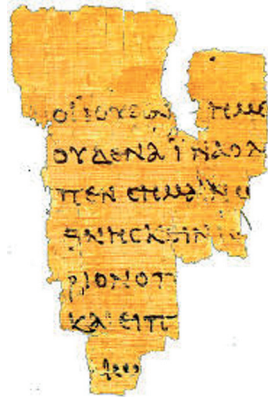 ΟΙ ΙΟΥΔΑΙ ΗΜΕ
ΟΥΔΕΝΑ ΪΝΑ ΟΛ
ΠΕΝ CΗΜΑΙΝΩ
ΘΝΗCΚΕΙΝ
ΡΙΟΝ ΟΠ
ΚΑΙ ΕΙΠ